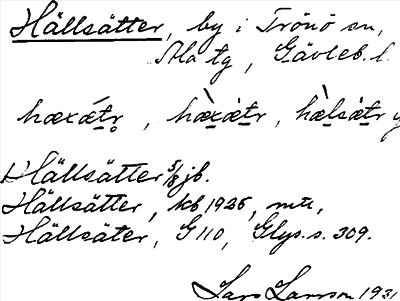 Hällsätter, by i Trönö sn,
Ala tg, Gävleb. l.
hæxætr̥, hæxætr, hælsætr
Hällsätter 5/8 jb.
Hällsätter, kb 1925, mtl,
Hällsäter, G 110, Glys. s. 309.
Lars Larsson 1931